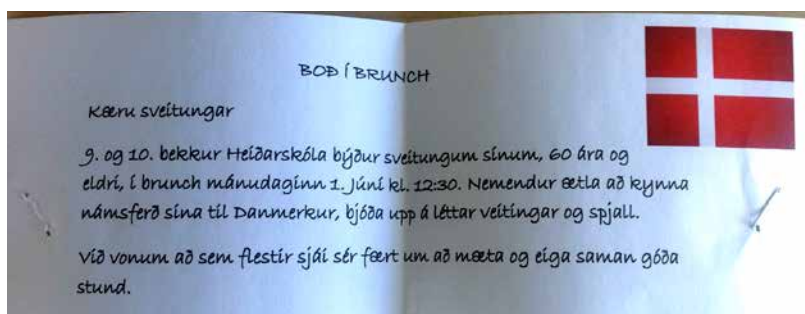 BOÐ Í BRUNCH
Kæru sveitungar
9. og 10. bekkur Heiðarskóla býður sveitungum sínum, 60 ára og
eldri, í brunch mánudaginn 1. júní kl. 12:30. Nemendur ætla að kynna
námsferð sína til Danmerkur, bjóða upp á léttar veitingar og spjall.
Við vonum að sem flestir sjái sér fært um að mæta og eiga saman góða
stund.